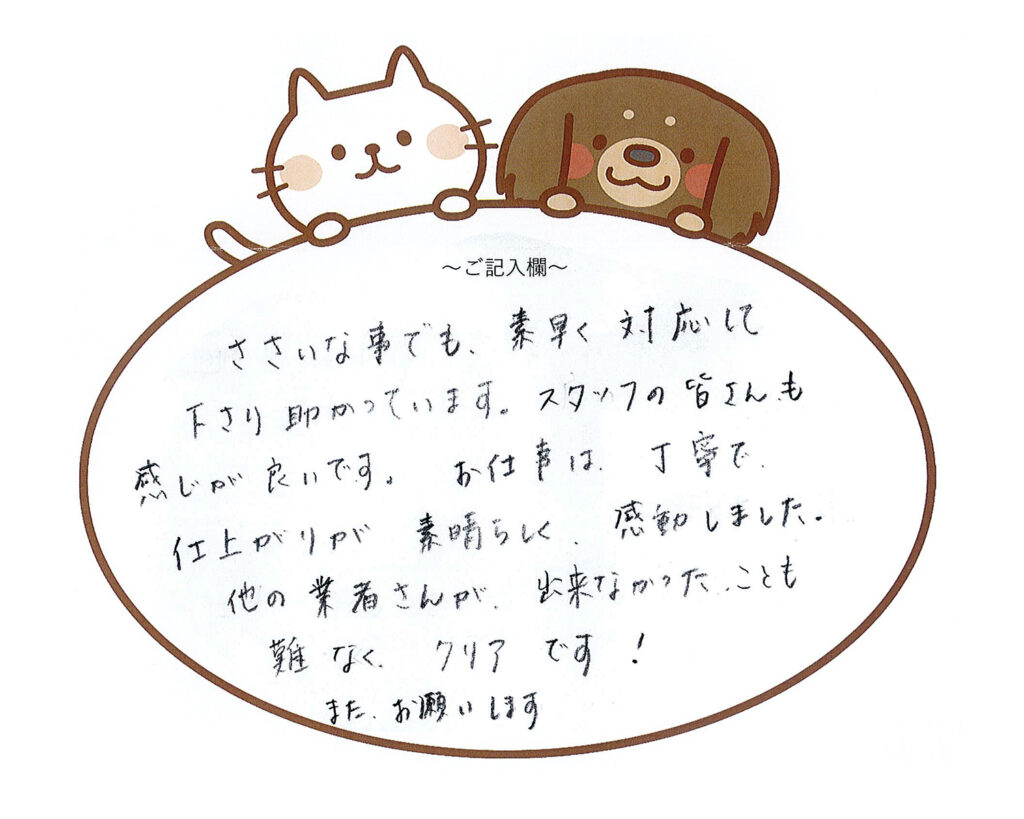 ～ご記入欄～
ささいな事でも、素早く対応して
下さり助かっています。スタッフの皆さんも
感じが良いです。お仕事は、丁寧で、
仕上がりが素晴らしく、感動しました。
他の業者さんが、出来なかった、ことも
難なく、クリアです！
また、お願いします